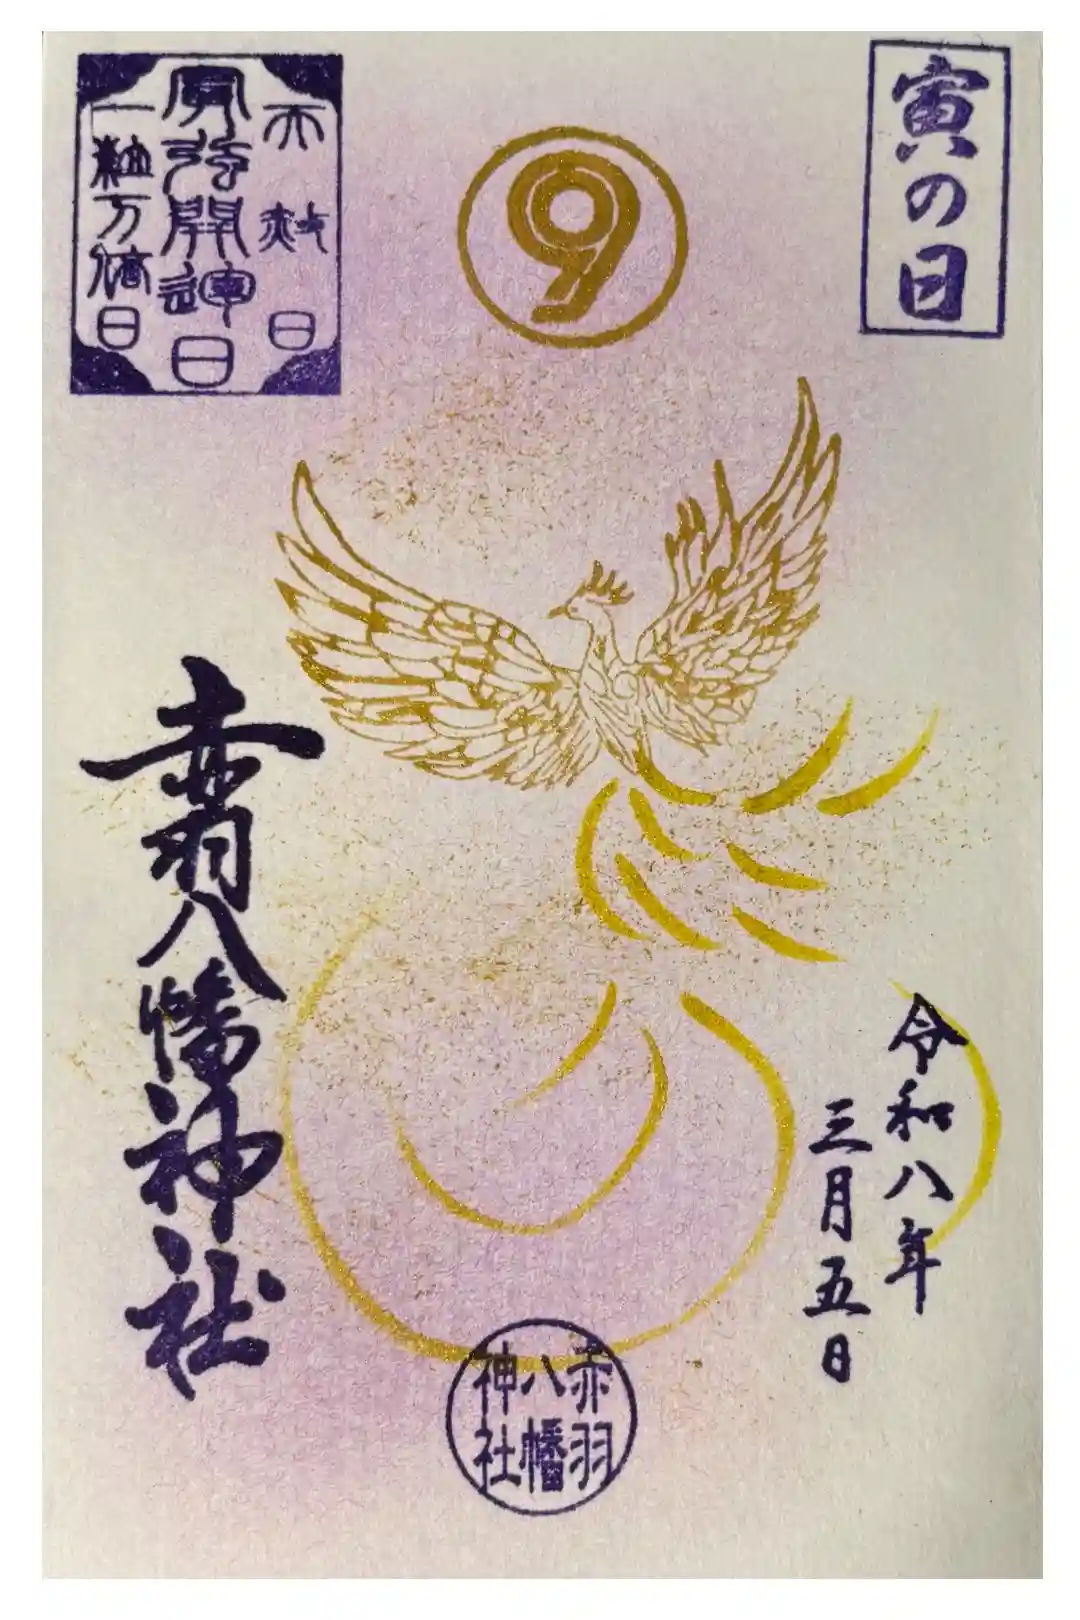 寅の日
9
天赦日
開運日
一粒万倍日
令和八年
三月五日
赤羽八幡神社
赤羽
八幡
神社